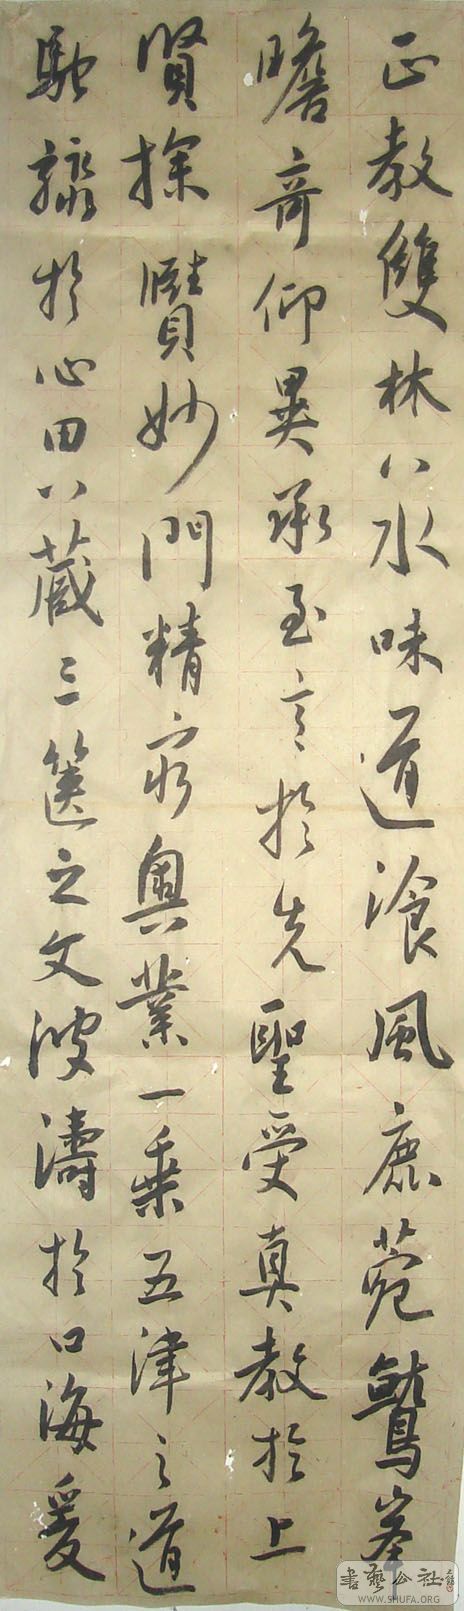 正教雙林八水味道飡風鹿菀鷲峯
瞻奇仰異承至言於先聖受真教於上
賢探賾妙門精窮奧業一乗五津之道
馳驟於心田八藏三篋之文波濤於口海爰
書藝公社
WWW.SHUFA.ORG